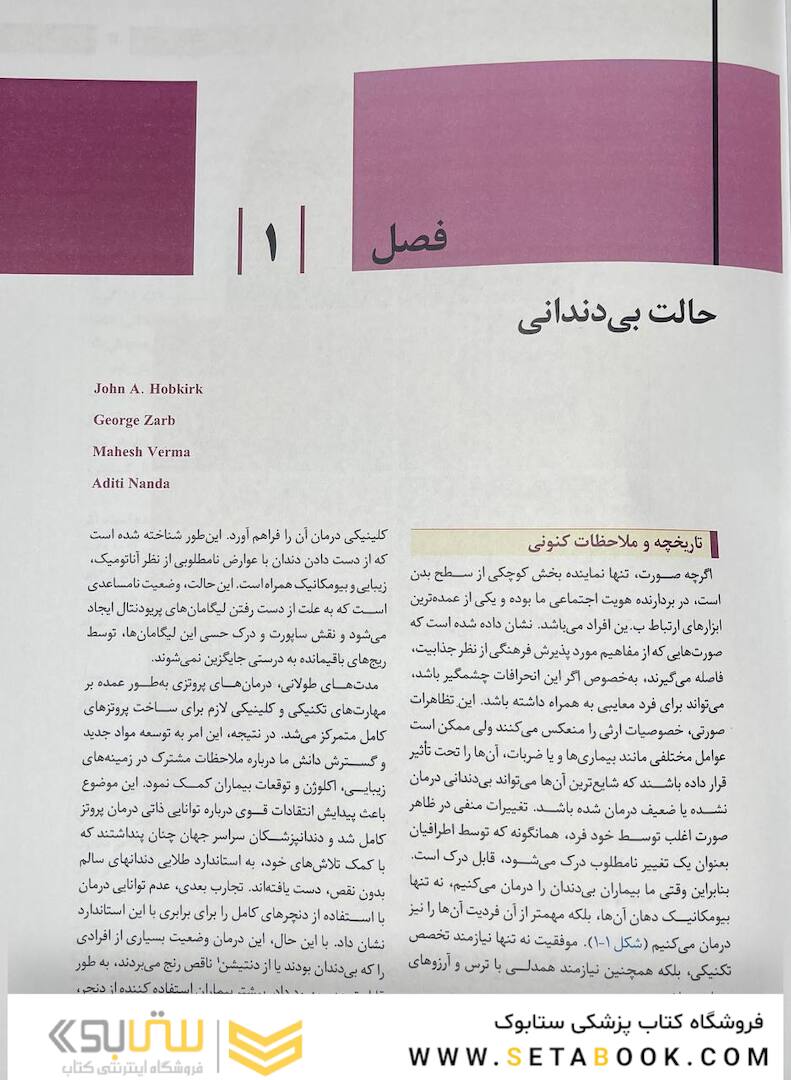 فصل
۱
حالت بی‌دندانی
John A. Hobkirk
George Zarb
Mahesh Verma
Aditi Nanda
تاریخچه و ملاحظات کنونی
اگرچه صورت، تنها نماینده بخش کوچکی از سطح بدن
است، در بردارنده هویت اجتماعی ما بوده و یکی از عمده‌ترین
ابزارهای ارتباط ب.ین افراد می‌باشد. نشان داده شده است که
صورت‌هایی که از مفاهیم مورد پذیرش فرهنگی از نظر جذابیت،
فاصله می‌گیرند، به‌خصوص اگر این انحرافات چشمگیر باشد،
می‌تواند برای فرد معایبی به همراه داشته باشد. این تظاهرات
صورتی، خصوصیات ارثی را منعکس می‌کنند ولی ممکن است
عوامل مختلفی مانند بیماری‌ها و یا ضربات، آن‌ها را تحت تأثیر
قرار داده باشند که شایع‌ترین آن‌ها می‌تواند بی‌دندانی درمان
نشده یا ضعیف درمان شده باشد. تغییرات منفی در ظاهر
صورت اغلب توسط خود فرد، همانگونه که توسط اطرافیان
بعنوان یک تغییر نامطلوب درک می‌شود، قابل درک است.
بنابراین وقتی ما بیماران بی‌دندان را درمان می‌کنیم، نه تنها
بیومکانیک دهان آن‌ها، بلکه مهمتر از آن فردیت آن‌ها را نیز
درمان می‌کنیم (شکل ۱-۱). موفقیت نه تنها نیازمند تخصص
تکنیکی، بلکه همچنین نیازمند همدلی با ترس و آرزوهای
کلینیکی درمان آن را فراهم آورد. این‌طور شناخته شده است
که از دست دادن دندان با عوارض نامطلوبی از نظر آناتومیک،
زیبایی و بیومکانیک همراه است. این حالت، وضعیت نامساعدی
است که به علت از دست رفتن لیگامان‌های پریودنتال ایجاد
می‌شود و نقش ساپورت و درک حسی این لیگامان‌ها، توسط
ریج‌های باقیمانده به درستی جایگزین نمی‌شوند.
مدت‌های طولانی، درمان‌های پروتزی به‌طور عمده بر
مهارت‌های تکنیکی و کلینیکی لازم برای ساخت پروتزهای
کامل متمرکز می‌شد. در نتیجه، این امر به توسعه مواد جدید
و گسترش دانش ما درباره ملاحظات مشترک در زمینه‌های
زیبایی، اکلوژن و توقعات بیماران کمک نمود. این موضوع
باعث پیدایش انتقادات قوی درباره توانایی ذاتی درمان پروتز
کامل شد و دندانپزشکان سراسر جهان چنان پنداشتند که
با کمک تلاش‌های خود، به استاندارد طلایی دندانهای سالم
بدون نقص، دست یافته‌اند. تجارب بعدی، عدم توانایی درمان
با استفاده از دنچرهای کامل را برای برابری با این استاندارد
نشان داد. با این حال، این درمان وضعیت بسیاری از افرادی
را که بی‌دندان بودند یا از دنتیشن۱ ناقص رنج می‌بردند، به طور
بیشتر بیماران استفاده کننده از دنچر،
ستابوک
فروشگاه اینترنتی کتاب
فروشگاه کتاب پزشکی ستابوک
WWW.SETABOOK.COM